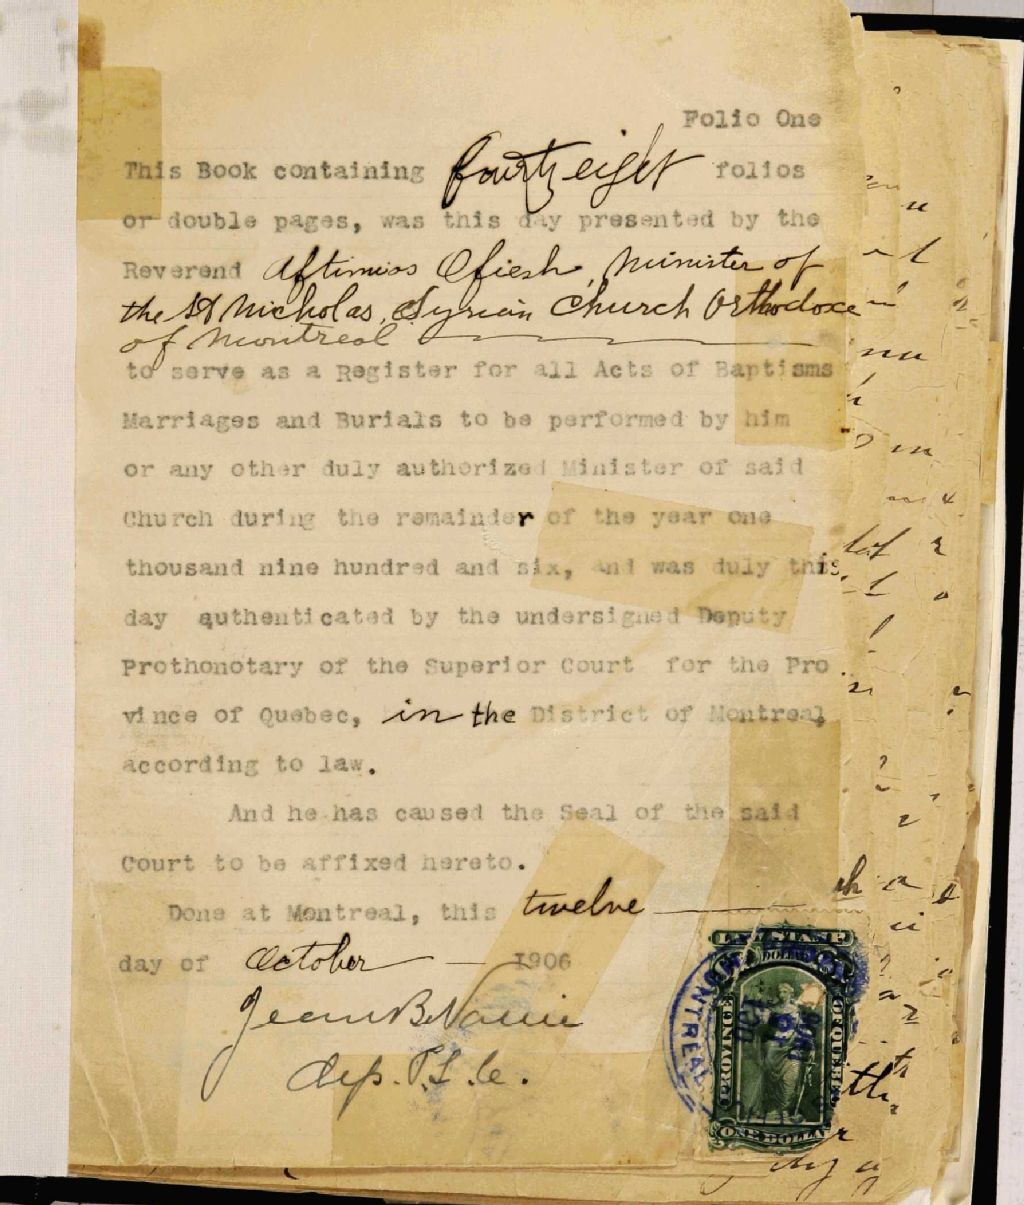 Folio One
This Book containing fourty eight folios
or double pages, was this day presented by the
Reverend Aftimios Ofiesh, Minister of
the St Nicholas, Syrian Church Orthodoxe
of Montreal
to serve as a Register for all Acts of Baptisms
Marriages and Burials to be performed by him
or any other duly authorized Minister of said
Church during the remainder of the year one
thousand nine hundred and six, and was duly this
day authenticated by the undersigned Deputy
Prothonotary of the Superior Court for the Pro
vince of Quebec, in the District of Montreal
according to law.
And he has caused the Seal of the said
Court to be affixed hereto.
Done at Montreal, this twelve
day of October 1906
Jean B.
dep. P.S.C.
LAW STAMP
DOLLAR
PROVINCE OF QUEBEC
ONE DOLLAR
MONTREAL
OCT
1906